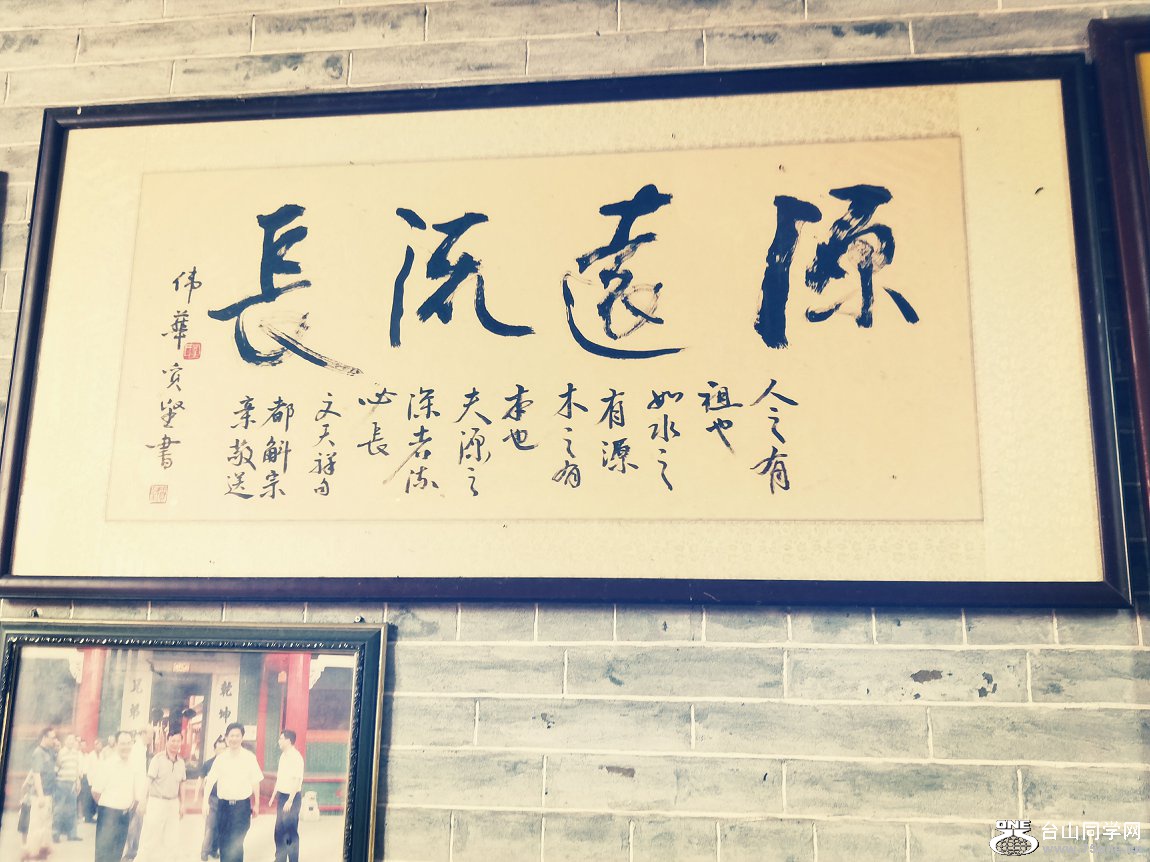 源遠流長
人之有
祖也
如水之
有源
木之有
本也
夫源之
深者流
必長
文天祥句
都斛宗
亲敬送
伟華
書
乾坤
ONE
台山同学网